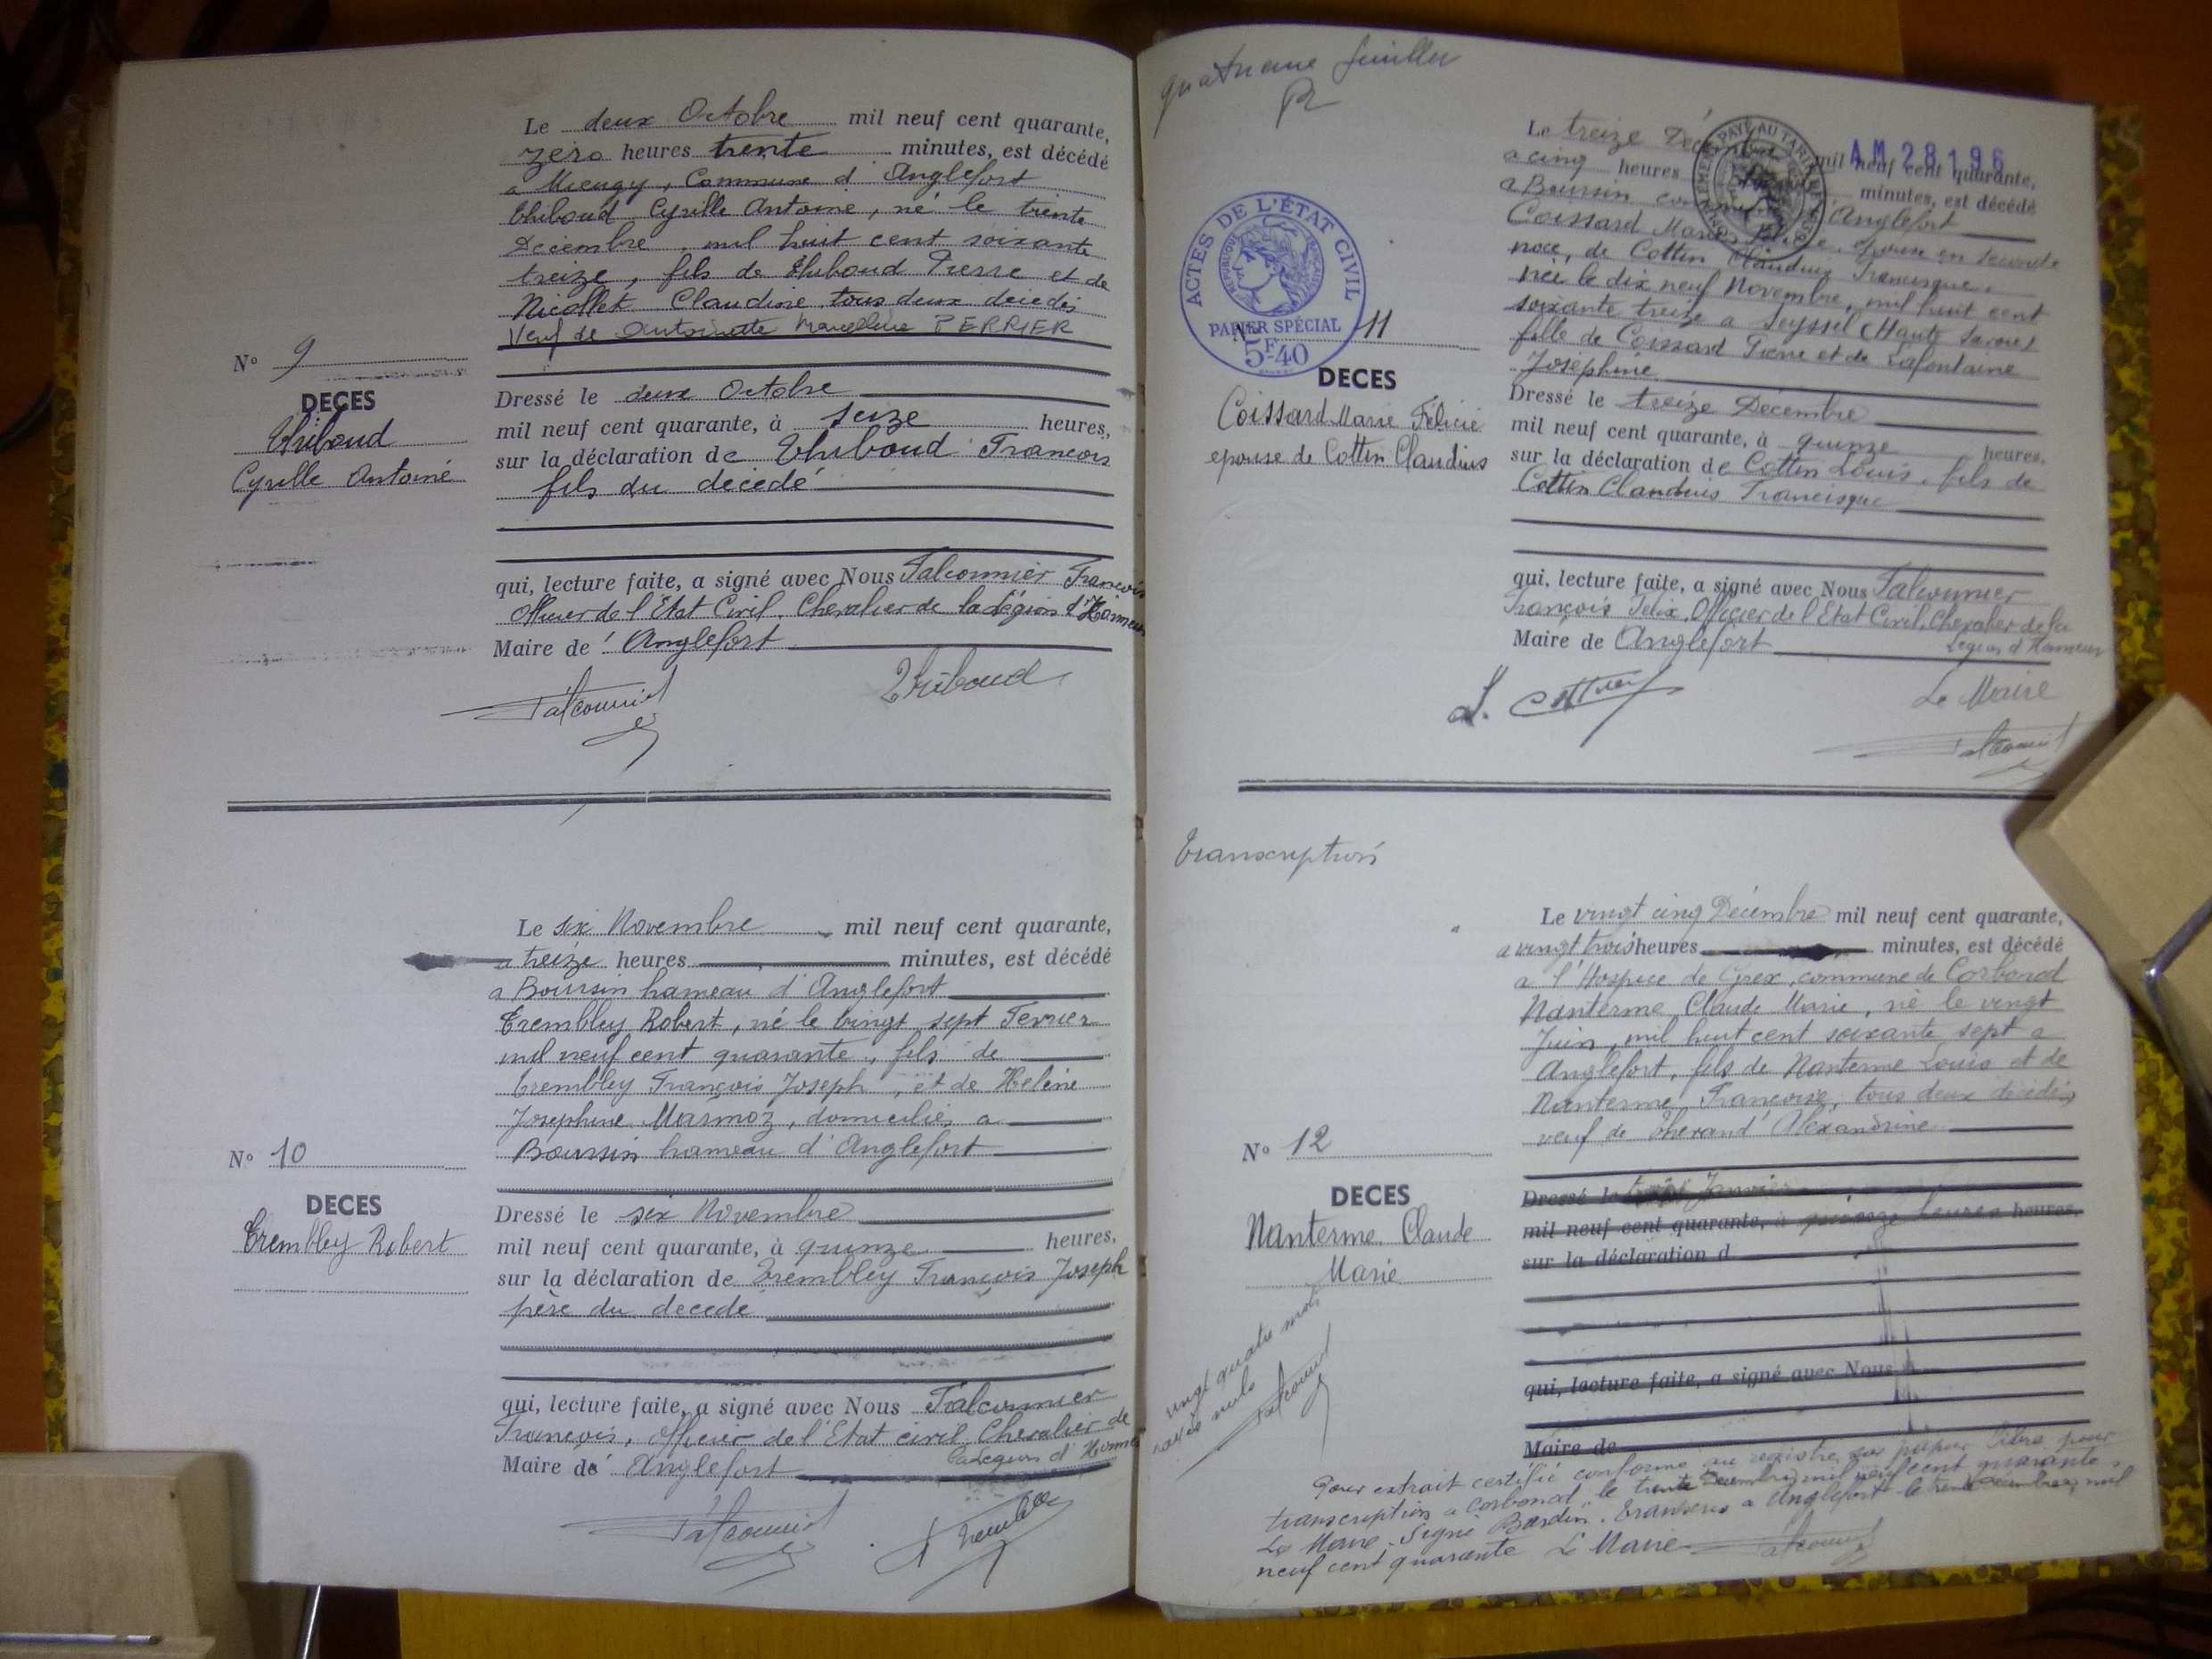 Le deux Octobre mil neuf cent quarante,
zéro heures trente minutes, est décédé
a Mieugy, Commune d'Anglefort
Thiboud Cyrille Antoine, né le trente
Décembre, mil huit cent soixante
treize, fils de Thiboud Pierre et de
Nicollet Claudine, tous deux décédés
Veuf de Antoinette Marcelline PERRIER
N° 9
DECES
Thiboud
Cyrille Antoine
Dressé le deux Octobre
mil neuf cent quarante, à seize heures,
sur la déclaration de Thiboud François
fils du décédé
qui, lecture faite, a signé avec Nous Falconnier François
Officier de l'Etat Civil, Chevalier de la Légion d'Honneur
Maire de Anglefort
Falconnier
Thiboud
Le six Novembre mil neuf cent quarante,
a treize heures minutes, est décédé
a Boursin hameau d'Anglefort
Trembley Robert, né le vingt sept Fevrier
mil neuf cent quarante, fils de
Trembley François Joseph, et de Helène
Josephine Marmoz, domiciliés a
Boursin hameau d'Anglefort
N° 10
DECES
Trembley Robert
Dressé le six Novembre
mil neuf cent quarante, à quinze heures,
sur la déclaration de Trembley François Joseph
père du decede
qui, lecture faite, a signé avec Nous Falconnier
François, officier de l'Etat civil Chevalier de
la Legion d'Honneur
Maire de Anglefort
Falconnier
Trembley
quatrieme feuillet
Le treize mil neuf cent quarante,
AM 28196
a cinq heures minutes, est décédé
a Boursin Anglefort
Coissard Marie épouse en seconde
noce, de Cottin Claudius Francisque
née le dix neuf Novembre, mil huit cent
soixante treize a Seyssel (Haute Savoie)
fille de Coissard Pierre et de Lafontaine
Joséphine
ACTES DE L'ÉTAT CIVIL
RÉPUBLIQUE FRANÇAISE
PAPIER SPÉCIAL
5F40
N° 11
DECES
Coissard Marie Félicie
epouse de Cottin Claudius
Dressé le treize Décembre
mil neuf cent quarante, à quinze heures,
sur la déclaration de Cottin Louis, fils de
Cottin Claudius Francisque
qui, lecture faite, a signé avec Nous Falconnier
François Felix, Officier de l'Etat Civil, Chevalier de la
Legion d'Honneur
Maire de Anglefort
L. Cottin
Le Maire
Falconnier
Transcription
Le vingt cinq Décembre mil neuf cent quarante,
a vingt trois heures minutes, est décédé
a l'Hospice de Gyex, commune de Corbonod
Nanterme Claude Marie, né le vingt
Juin, mil huit cent soixante sept a
Anglefort, fils de Nanterme Louis et de
Nanterme Françoise, tous deux décédés
veuf de Therand Alexandrine
N° 12
DECES
Nanterme Claude
Marie
Dressé le Janvier
mil neuf cent quarante, à quinze heures heures,
sur la déclaration d
qui, lecture faite, a signé avec Nous
Maire de
vingt quatre mots
rayés nuls
Falconnier
Pour extrait certifié conforme au registre sur papier libre pour
transcription a Corbonod, le trente Decembre mil neuf cent quarante,
Le Maire, Signé Bardin. Transcris a Anglefort le trente Décembre, mil
neuf cent quarante Le Maire Falconnier